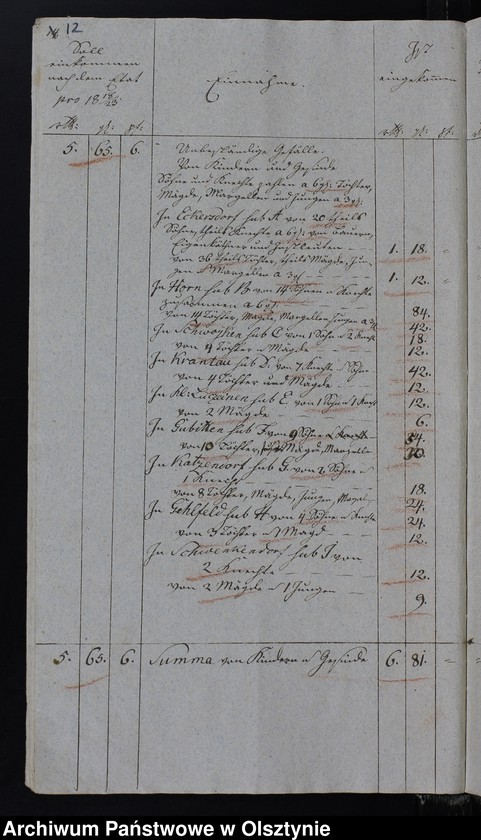 12
Soll
einkommen
nach dem Etat
pro 18
Einnahme.
Ist
eingekommen
rtl: gl: pf:
rtl: gl: pf:
5. 65. 6.
Unbeständige Gefälle.
Von Kindern und Gesinde
Söhne und Knechte zahlen a 6 gl: Töchter,
Mägde, Margellen und Jungen a 3 gl:
In Eckersdorf sub A von 26 theils
Söhne, theils Knechte a 6 gl: von Bauern,
Eigenkäthner und Instleuten 1. 18.
von 36 theils Töchter, theils Mägde, Jun-
gen Margellen a 3 gl 1. 12.
In Horn sub B von 14 Söhnen u Knechte
zusammen a 6 gl. 84.
von 14 Töchter, Mägde, Margellen Jungen a 3 gl 42.
In sub C von 1 Sohn u 2 Knecht 18.
von 4 Töchter u Mägde 12.
In Krantau sub D. von 7 Knecht u Söhn 42.
von 4 Töchter und Mägde 12.
In Kl: sub E. von 1 Sohn u 1 Knecht 12.
von 2 Mägde 6.
In Gubitten sub F von 9 Söhne u Knechte 54.
von 10 Töchter, Mägde, Margelle 30.
In Katzendorf sub G. von 2 Söhne u
1 Knecht 18.
von 8 Töchter, Mägde, Jungen, 24.
In Gehlfeld sub H von 4 Söhne u Knechte 24.
von 3 Töchter u 1 Magd 12.
In Schwenkendorf sub I von
2 Knechte 12.
von 2 Mägde u 1 Jungen 9.
5. 65. 6. Summa von Kindern u Gesinde 6. 81.
Archiwum Państwowe w Olsztynie